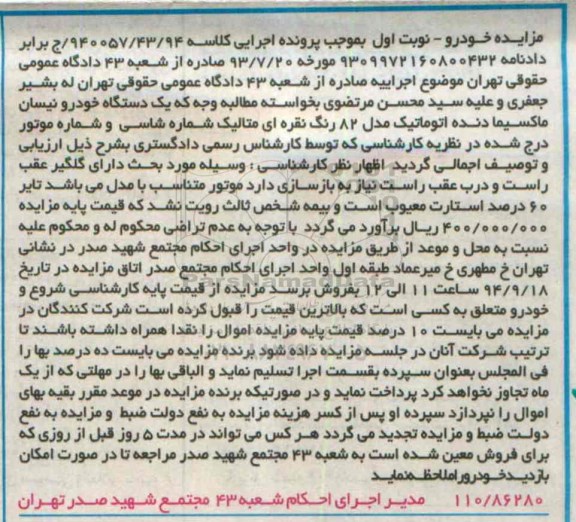 مزایده خودرو - نوبت اول بموجب پرونده اجرایی کلاسه ۹۴۰۰۵۷/۴۳/۹۴/ج برابر
دادنامه ۹۳۰۹۹۷۲۱۶۰۸۰۰۴۳۲ مورخه ۹۳/۷/۲۰ صادره از شعبه ۴۳ دادگاه عمومی
حقوقی تهران موضوع اجراییه صادره از شعبه ۴۳ دادگاه عمومی حقوقی تهران له بشیر
جعفری و علیه سید محسن مرتضوی بخواسته مطالبه وجه که یک دستگاه خودرو نیسان
ماکسیما دنده اتوماتیک مدل ۸۲ رنگ نقره ای متالیک شماره شاسی و شماره موتور
درج شده در نظریه کارشناسی که توسط کارشناس رسمی دادگستری بشرح ذیل ارزیابی
و توصیف اجمالی گردید اظهار نظر کارشناسی : وسیله مورد بحث دارای گلگیر عقب
راست و درب عقب راست نیاز به بازسازی دارد موتور متناسب با مدل می باشد تایر
۶۰ درصد استارت معیوب است و بیمه شخص ثالث رویت نشد که قیمت پایه مزایده
۴۰۰/۰۰۰/۰۰۰ ریال برآورد می گردد با توجه به عدم تراضی محکوم له و محکوم علیه
نسبت به محل و موعد از طریق مزایده در واحد اجرای احکام مجتمع شهید صدر در نشانی
تهران خ مطهری خ میرعماد طبقه اول واحد اجرای احکام مجتمع صدر اتاق مزایده در تاریخ
۹۴/۹/۱۸ ساعت ۱۱ الی ۱۲ بفروش برسد مزایده از قیمت پایه کارشناسی شروع و
خودرو متعلق به کسی است که بالاترین قیمت را قبول کرده است شرکت کنندگان در
مزایده می بایست ۱۰ درصد قیمت پایه مزایده اموال را نقدا همراه داشته باشند تا
ترتیب شرکت آنان در جلسه مزایده داده شود برنده مزایده می بایست ده درصد بها را
فی المجلس بعنوان سپرده بقسمت اجرا تسلیم نماید و الباقی بها را در مهلتی که از یک
ماه تجاوز نخواهد کرد پرداخت نماید و در صورتیکه برنده مزایده در موعد مقرر بقیه بهای
اموال را نپردازد سپرده او پس از کسر هزینه مزایده به نفع دولت ضبط و مزایده به نفع
دولت ضبط و مزایده تجدید می گردد هر کس می تواند در مدت ۵ روز قبل از روزی که
برای فروش معین شده است به شعبه ۴۳ مجتمع شهید صدر مراجعه تا در صورت امکان
بازدید خودرو را ملاحظه نماید
۱۱۰/۸۶۲۸۰ مدیر اجرای احکام شعبه ۴۳ مجتمع شهید صدر تهران